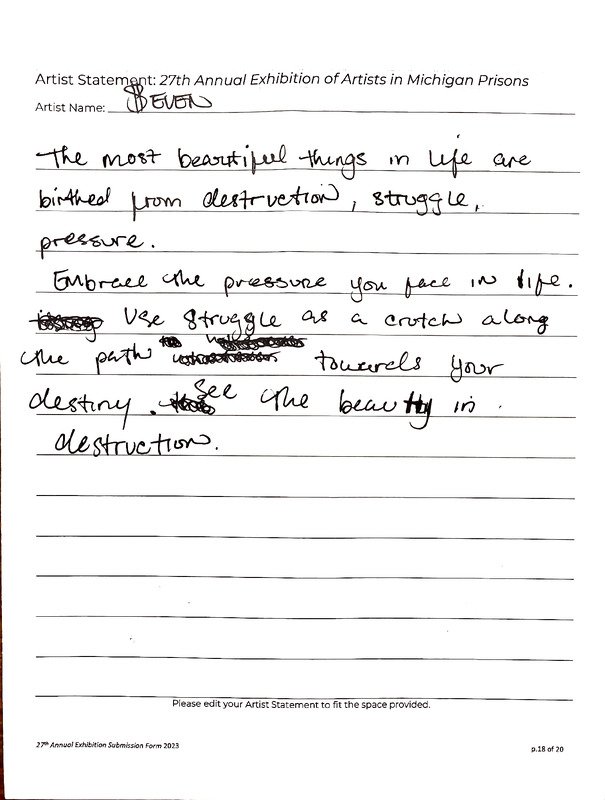 Artist Statement: 27th Annual Exhibition of Artists in Michigan Prisons
Artist Name: $EVEN
The most beautiful things in life are
birthed from destruction, struggle,
pressure.
Embrace the pressure you face in life.
Use struggle as a crutch along
the path towards your
destiny. See the beauty in
destruction.
Please edit your Artist Statement to fit the space provided.
27th Annual Exhibition Submission Form 2023
p.18 of 20